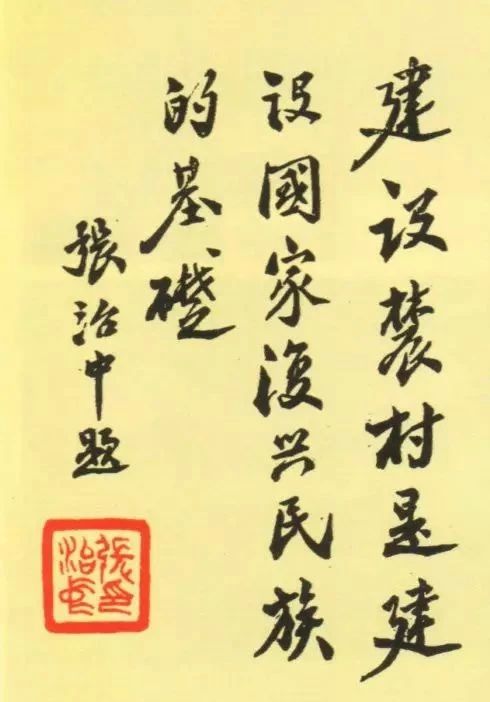 建设農村是建
设國家復兴民族
的基礎
張治中题
張印
治中